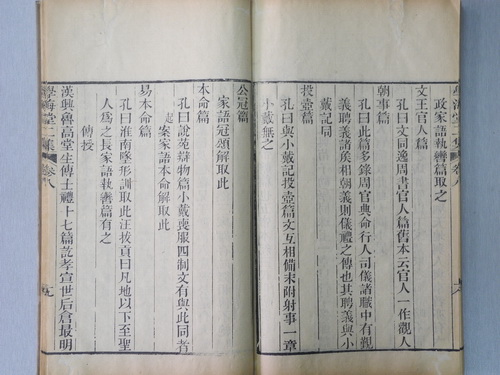 學海堂二集
卷八
政家語執轡篇取之
文王官人篇
孔曰文同逸周書官人篇舊本云官人一作觀人
朝事篇
孔曰此篇多錄周官典命行人司儀諸職中有覲
義聘義諸矦相朝義則儀禮之傳也其聘義與小
戴記局
投壺篇
孔曰與小戴記投壺篇文互相備末附射事一章
小戴無之
公冠篇
家語冠頌解取此
本命篇
孔曰說苑辯物篇小戴喪服四制文有與此同者
案家語本命解取此
易本命篇
孔曰淮南墬形訓取此汪拔貢曰凡地以下至聖
人爲之長家語執轡篇有之
傳授
漢興魯高堂生傳士禮十七篇訖孝宣世后倉最明
學海堂二集
卷八